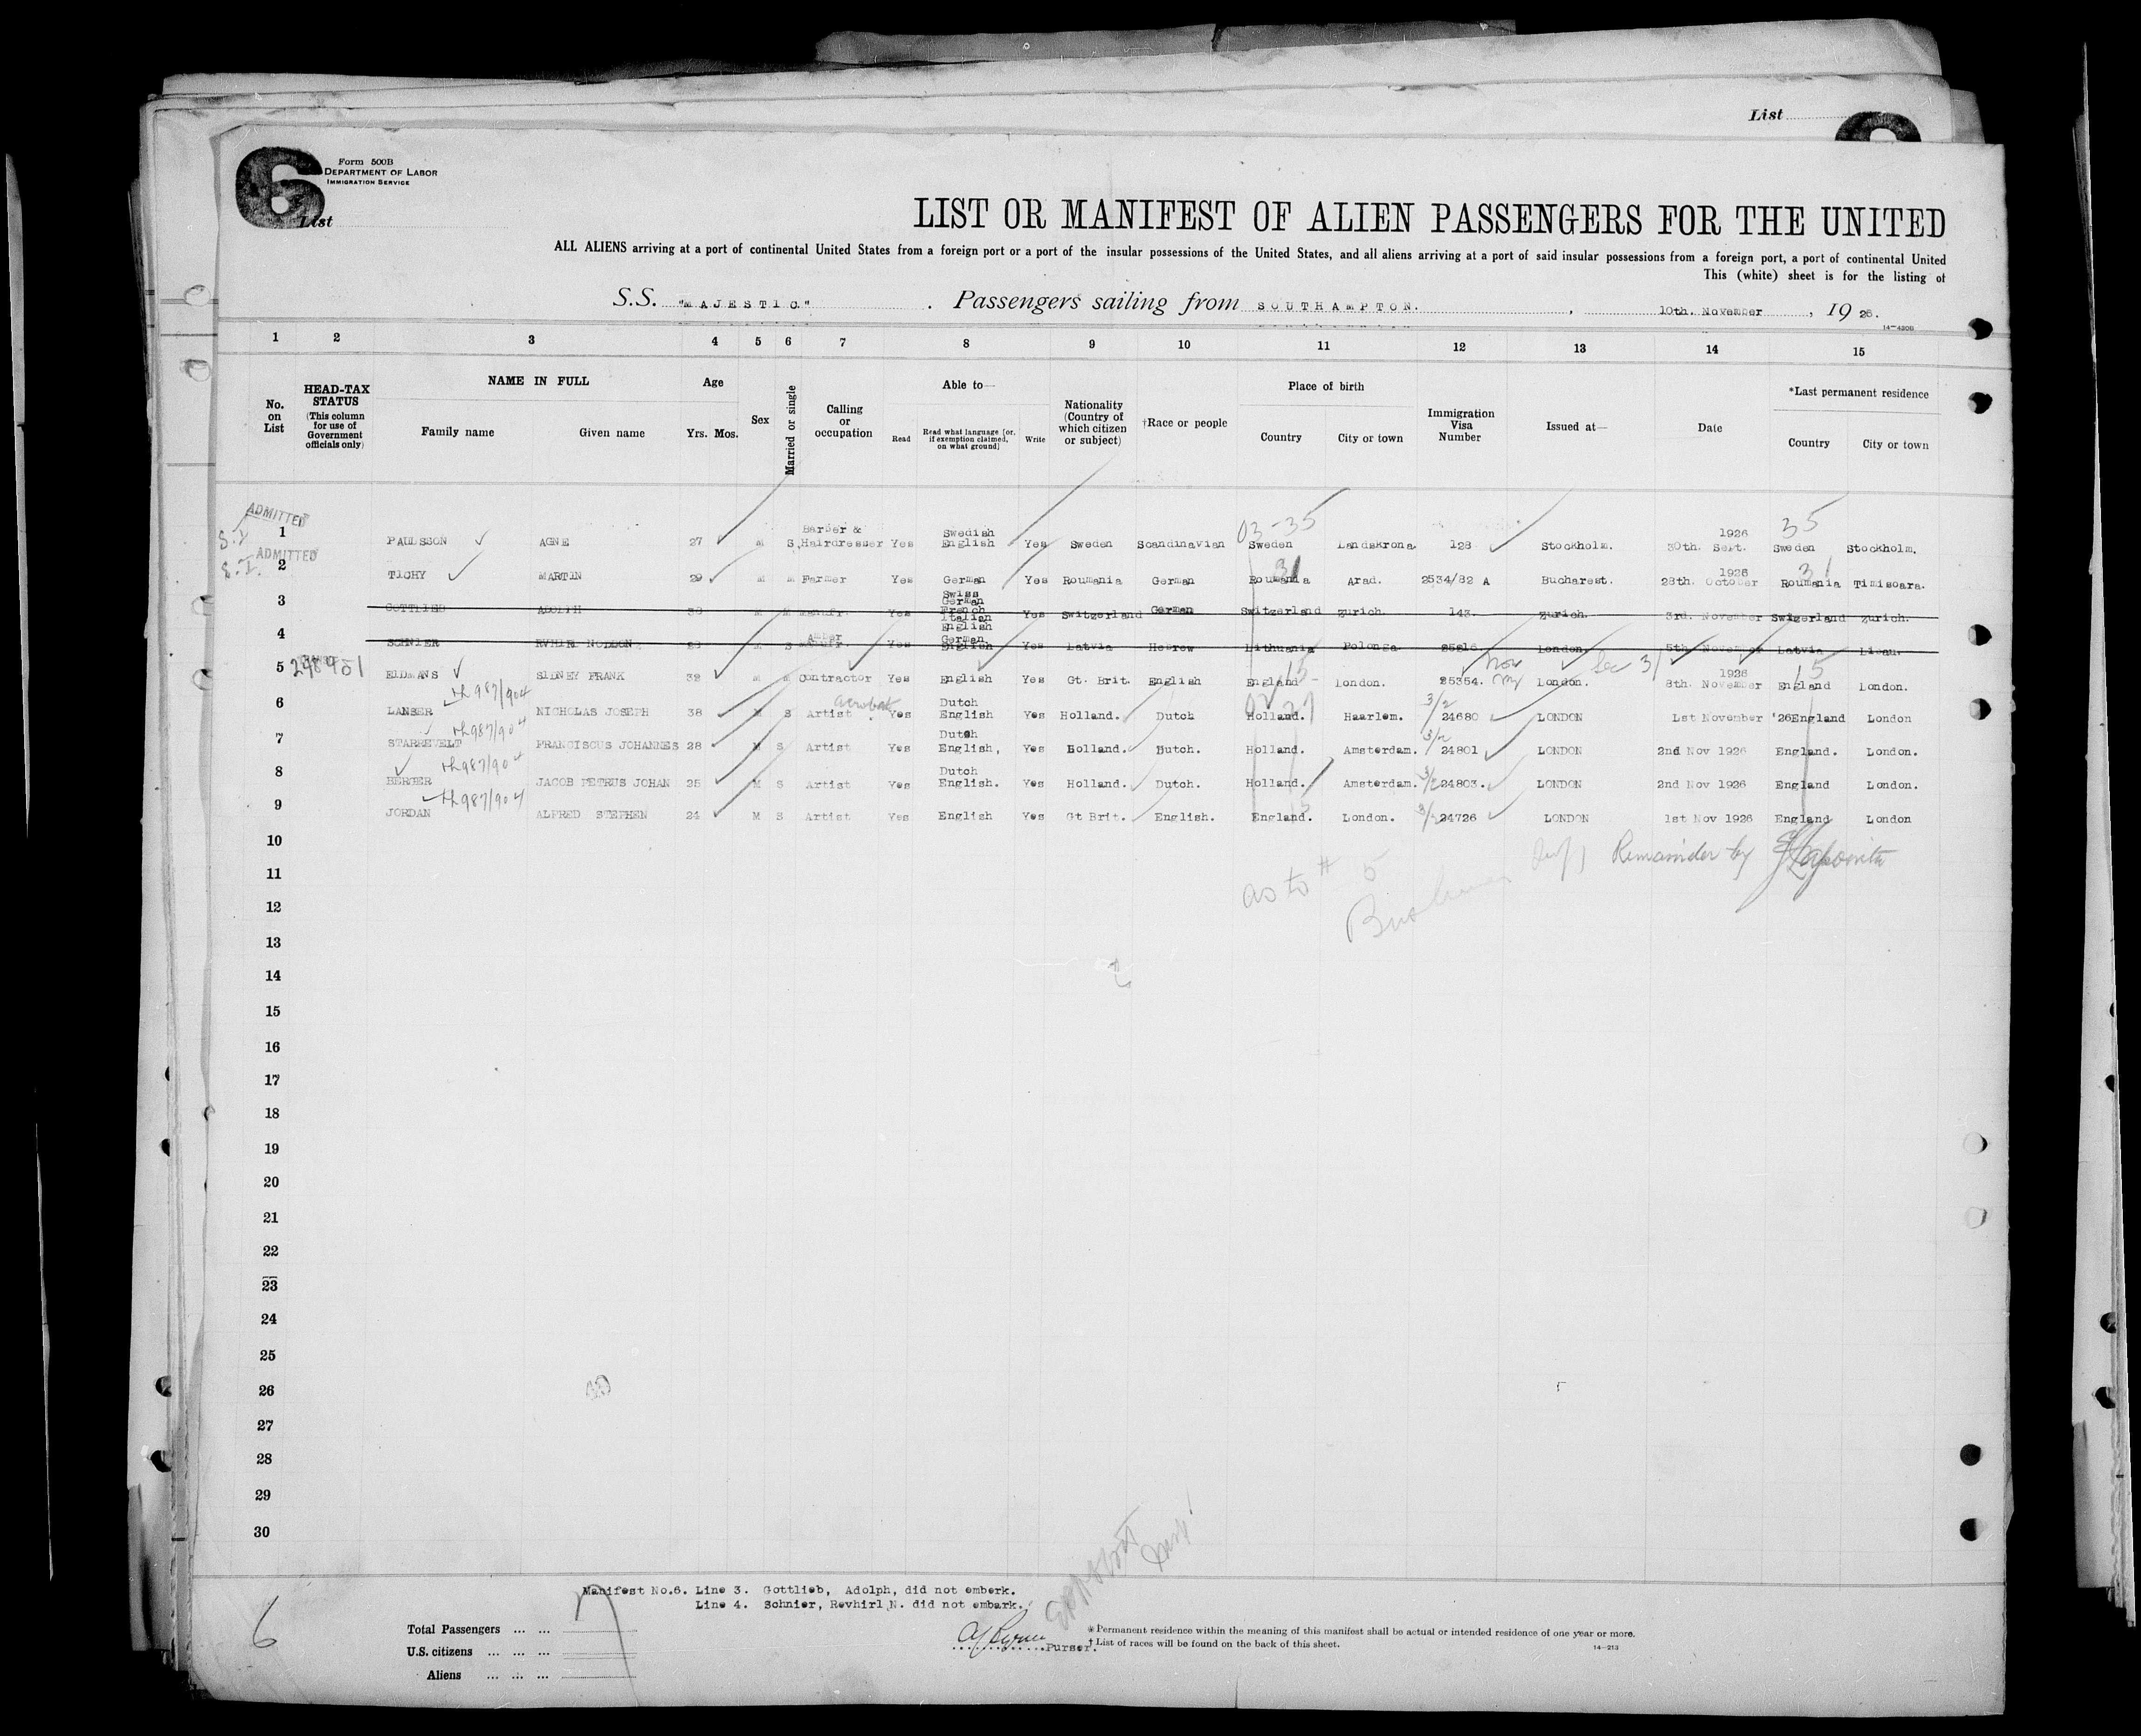 List
6
Form 500B
DEPARTMENT OF LABOR
IMMIGRATION SERVICE
List
LIST OR MANIFEST OF ALIEN PASSENGERS FOR THE UNITED
ALL ALIENS arriving at a port of continental United States from a foreign port or a port of the insular possessions of the United States, and all aliens arriving at a port of said insular possessions from a foreign port, a port of continental United
This (white) sheet is for the listing of
S.S. "MAJESTIC". Passengers sailing from SOUTHAMPTON. , 10th. November , 19 26.
14-420B
1 2 3 4 5 6 7 8 9 10 11 12 13 14 15
No. on List
HEAD-TAX STATUS (This column for use of Government officials only)
NAME IN FULL
Family name Given name
Age
Yrs. Mos.
Sex
Married or single
Calling or occupation
Able to—
Read
Read what language [or, if exemption claimed, on what ground]
Write
Nationality (Country of which citizen or subject)
†Race or people
Place of birth
Country City or town
Immigration Visa Number
Issued at—
Date
*Last permanent residence
Country City or town
ADMITTED
S.I.
03-35 35
1 PAULSSON AGNE 27 M S Barber & Hairdresser Yes Swedish English Yes Sweden Scandinavian Sweden Landskrona. 128 Stockholm. 30th. Sept. 1926 Sweden Stockholm.
ADMITTED
S.I.
31 31
2 TICHY MARTIN 29 M M Farmer Yes German Yes Roumania German Roumania Arad. 2534/82 A Bucharest. 28th. October 1926 Roumania Timisoara.
3 GOTTLIEB ADOLPH 38 M M Manufr. Yes Swiss German French Italian English Yes Switzerland German Switzerland Zurich. 143. Zurich. 3rd. November Swizerland Zurich.
4 SCHNIER M S Amber Manufr. Yes German English Yes Latvia Hebrew Lithuania Polonga. London. 5th November Latvia Libau.
298951
5 ERDMANS SIDNEY FRANK 32 M M Contractor Yes English Yes Gt. Brit. English England London. 25354. London. 8th. November 1926 England London.
Sec 3/ 15
987/904
6 LANSER NICHOLAS JOSEPH 38 M S Artist acrobat Yes Dutch English Yes Holland. Dutch Holland. Haarlem. 3/2 24680 LONDON 1st November '26 England London
987/904
7 STARREVELT FRANCISCUS JOHANNES 28 M S Artist Yes Dutch English, Yes Holland. Dutch. Holland. Amsterdam. 3/2 24801 LONDON 2nd Nov 1926 England. London.
987/904
8 BERGER JACOB PETRUS JOHAN 25 M S Artist Yes Dutch English. Yes Holland. Dutch. Holland. Amsterdam. 3/2 24803. LONDON 2nd Nov 1926 England London.
987/904
9 JORDAN ALFRED STEPHEN 24 M S Artist Yes English Yes Gt Brit. English. England. London. 24726 LONDON 1st Nov 1926 England London
10
Remainder by
as to # 5
11
12
13
14
15
16
17
18
19
20
21
22
23
24
25
26
27
28
29
30
Manifest No.6. Line 3. Gottlieb, Adolph, did not embark.
Line 4. Schnier, Revhirl N. did not embark.
6
Total Passengers ... ...
U.S. citizens ... ... ...
Aliens ... ... ...
7
Purser.
*Permanent residence within the meaning of this manifest shall be actual or intended residence of one year or more.
†List of races will be found on the back of this sheet.
14-213